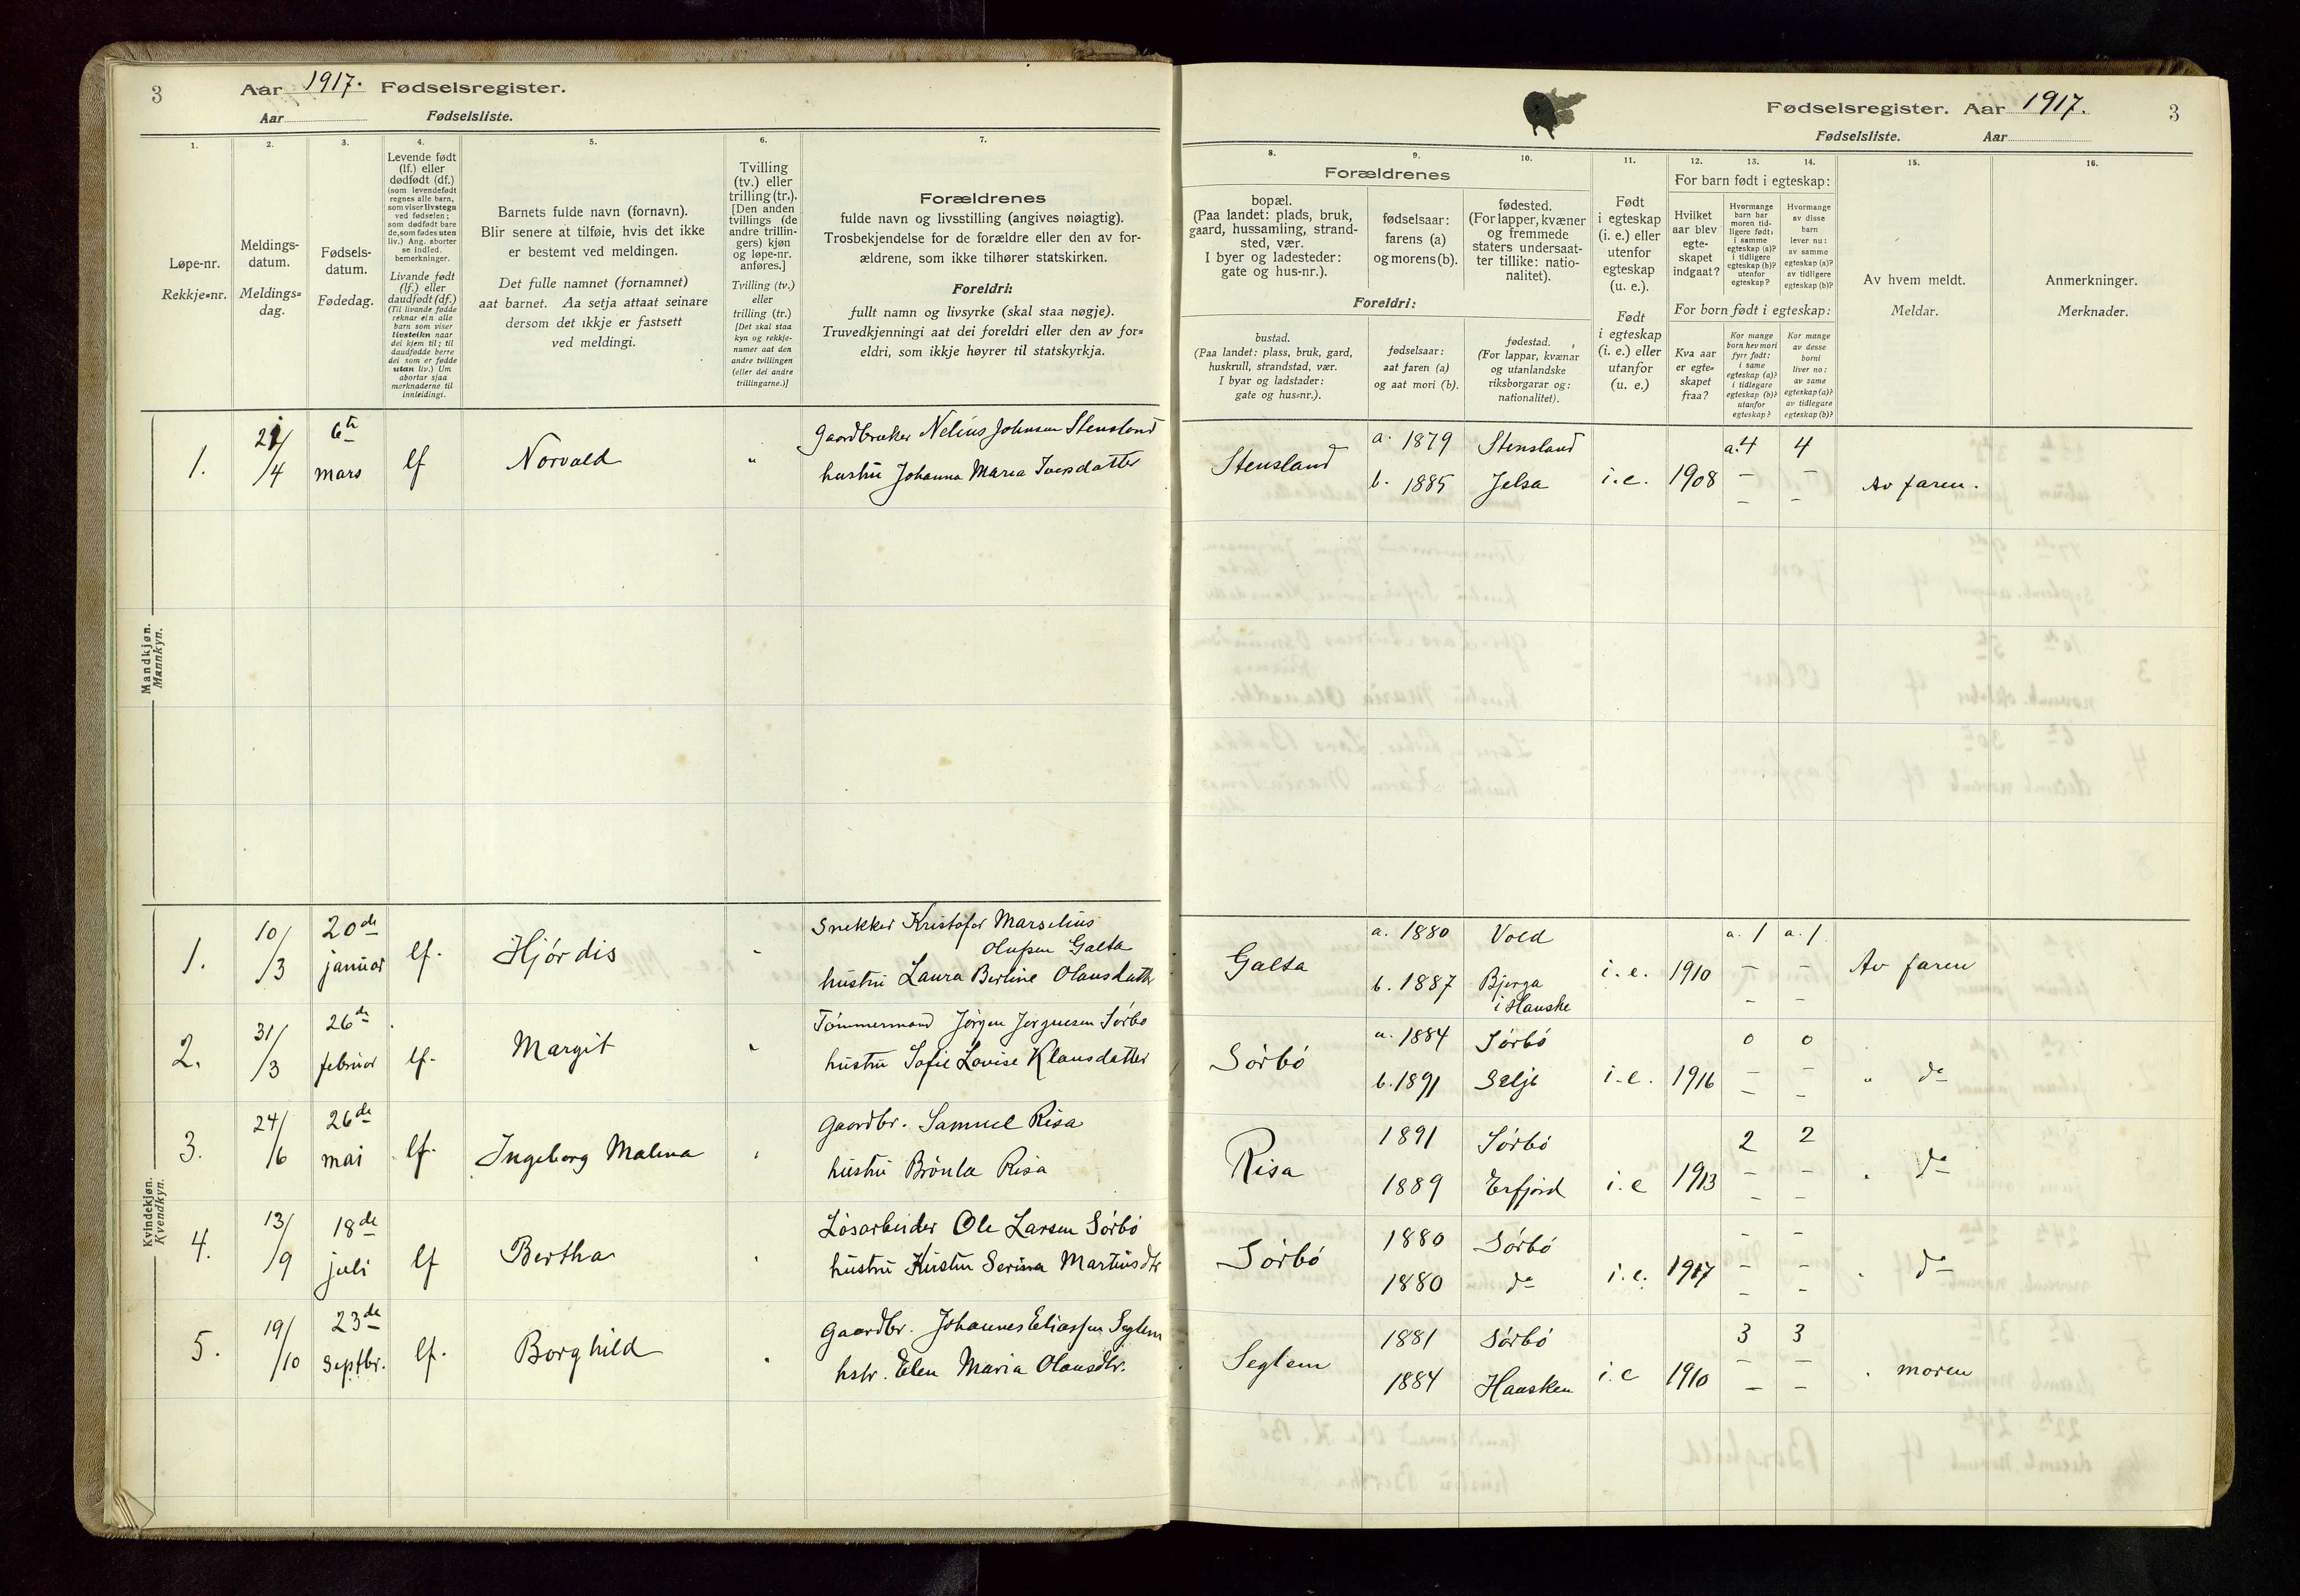 3
Aar 1917. Fødselsregister.
Aar Fødselsliste.
1.
Løpe-nr.
Rekkje=nr.
2.
Meldings-
datum.
Meldings=
dag.
3.
Fødsels-
datum.
Fødedag.
4.
Levende født
(lf.) eller
dødfødt (df.)
(som levendefødt
regnes alle barn,
som viser livstegn
ved fødselen;
som dødfødt bare
de, som fødes uten
liv.) Ang. aborter
se indled.
bemerkninger.
Livande født
(lf.) eller
daudfødt (df.)
(Til livande fødde
reknar ein alle
barn som viser
livsteikn naar
dei kjem til; til
daudfødde berre
dei som er fødde
utan liv.) Um
abortar sjaa
merknaderne til
innleidingi.
5.
Barnets fulde navn (fornavn).
Blir senere at tilføie, hvis det ikke
er bestemt ved meldingen.
Det fulle namnet (fornamnet)
aat barnet. Aa setja attaat seinare
dersom det ikkje er fastsett
ved meldingi.
6.
Tvilling
(tv.) eller
trilling (tr.).
[Den anden
tvillings (de
andre trillin-
gers) kjøn
og løpe-nr.
anføres.]
Tvilling (tv.)
eller
trilling (tr.)
[Det skal staa
kyn og rekkje-
numer aat den
andre tvillingen
(eller dei andre
trillingarne.)]
7.
Forældrenes
fulde navn og livsstilling (angives nøiagtig).
Trosbekjendelse for de forældre eller den av for-
ældrene, som ikke tilhører statskirken.
Foreldri:
fullt namn og livsyrke (skal staa nøgje).
Truvedkjenningi aat dei foreldri eller den av for=
eldri, som ikkje høyrer til statskyrkja.
Fødselsregister. Aar 1917.
3
Fødselsliste. Aar
8.
Forældrenes
bopæl.
(Paa landet: plads, bruk,
gaard, hussamling, strand-
sted, vær.
I byer og ladesteder:
gate og hus-nr.).
Foreldri:
bustad.
(Paa landet: plass, bruk, gard,
huskrull, strandstad, vær.
I byar og ladstader:
gate og hus=nr.).
9.
fødselsaar:
farens (a)
og morens (b).
fødselsaar:
aat faren (a)
og aat mori (b).
10.
fødested.
(For lapper, kvæner
og fremmede
staters undersaat-
ter tillike: natio-
nalitet).
fødestad.
(For lappar, kvænar
og utanlandske
riksborgarar og:
nationalitet).
11.
Født
i egteskap
(i. e.) eller
utenfor
egteskap
(u. e.).
Født
i egteskap
(i. e.) eller
utanfor
(u. e.)
12.
13.
14.
For barn født i egteskap:
Hvilket
aar blev
egte-
skapet
indgaat?
Hvormange
barn har
moren tid-
ligere født:
i samme
egteskap (a)?
i tidligere
egteskap (b)?
utenfor
egteskap?
Hvormange
av disse
barn
lever nu:
av samme
egteskap (a)?
av tidligere
egteskap (b)?
For born født i egteskap:
Kva aar
er egte=
skapet
fraa?
Kor mange
born hev mori
fyrr født:
i same
egteskap (a)?
i tidlegare
egteskap (b)?
utanfor
egteskap?
Kor mange
av desse
borni
liver no:
av same
egteskap (a)?
av tidlegare
egteskap (b)?
15.
Av hvem meldt.
Meldar.
16.
Anmerkninger.
Merknader.
Mandkjøn.
Mannkyn.
1. 21/4 6te mars lf Norvald " Gaardbruker Nelius Johnsen Stensland
hustru Johanna Maria Iversdatter
Stensland a. 1879 Stensland a. 4 4
b. 1885 Jelsa i.e. 1908 – – Av faren.
– –
Kvindekjøn.
Kvendkyn.
1. 10/3 20de januar lf. Hjørdis " Snekker Kristofer Marselius
Olufsen Galta
hustru Laura Berline Olausdatter
Galta a. 1880 Vold a. 1 a. 1
b. 1887 Bjerga i.e. 1910 – – Av faren
i Hauske – –
2. 31/3 26de februar lf. Margit " Tømmermand Jørgen Jørgensen Sørbø
hustru Sofie Lovise Klausdatter
Sørbø a. 1884 Sørbø 0 0
b. 1891 Selje i.e. 1916 – – " do
– –
3. 24/6 26de mai lf. Ingeborg Malena " Gaardbr. Samuel Risa
hustru Brønla Risa
Risa 1891 Sørbø 2 2
1889 Erfjord i.e 1913 – – " do
– –
4. 13/9 18de juli lf Bertha " Løsarbeider Ole Larsen Sørbø
hustru Kirsten Serina Martinsdtr
Sørbø 1880 Sørbø – –
1880 do i.e. 1917 – – " do
– –
5. 19/10 23de Septbr. lf. Borghild " Gaardbr. Johannes Eliassen Seglem
hstr. Elen Maria Olausdtr.
Seglem 1881 Sørbø 3 3
1884 Hausken i.e 1910 – – " moren
– –